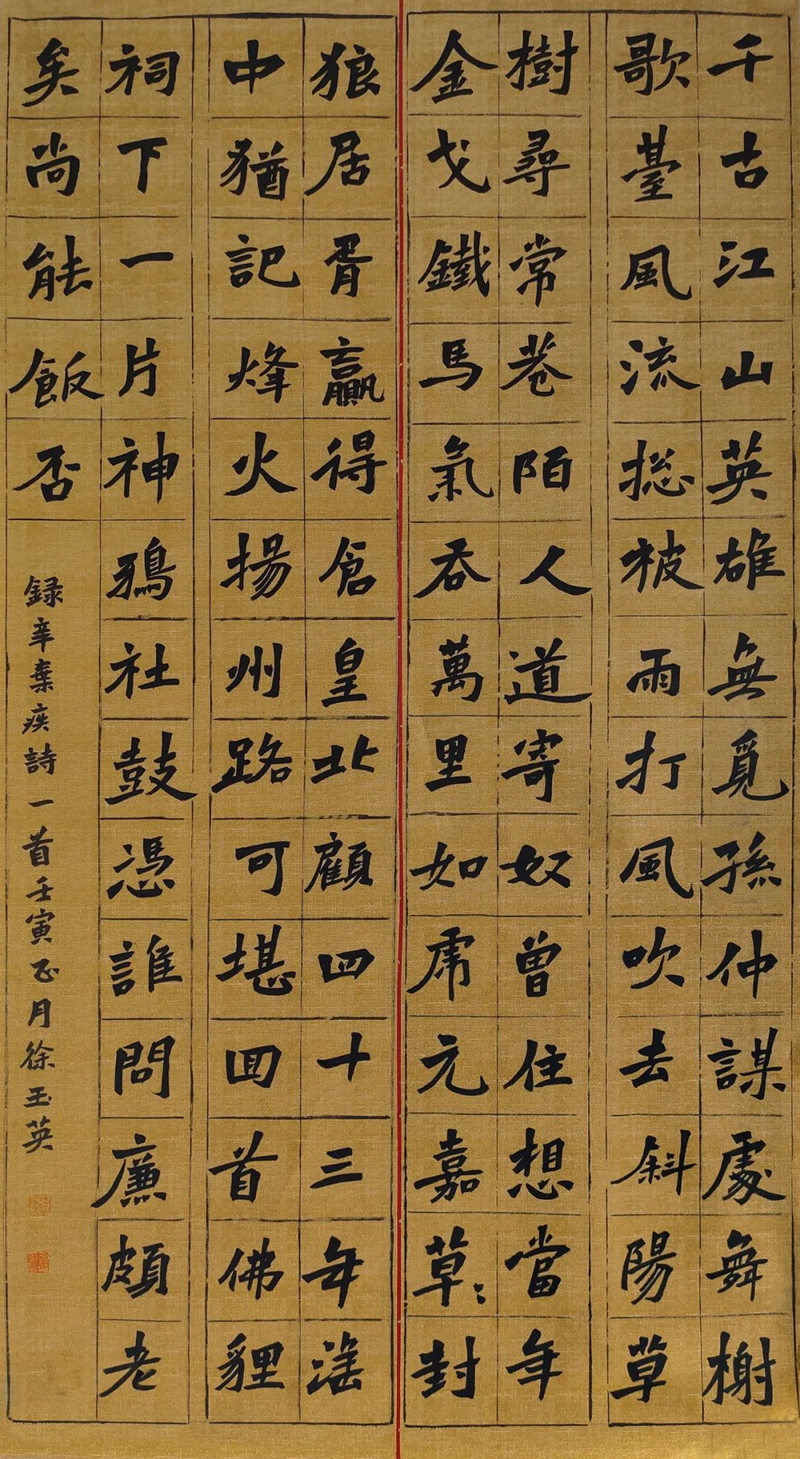 千古江山英雄無覓孫仲謀處舞榭
歌臺風流捴被雨打風吹去斜陽草
樹尋常巷陌人道寄奴曾住想當年
金戈鐵馬氣吞萬里如虎元嘉草〻封
狼居胥贏得倉皇北顧四十三年望
中猶記烽火揚州路可堪回首佛貍
祠下一片神鴉社鼓憑誰問廉頗老
矣尚能飯否
録辛棄疾詩一首壬寅正月徐玉英